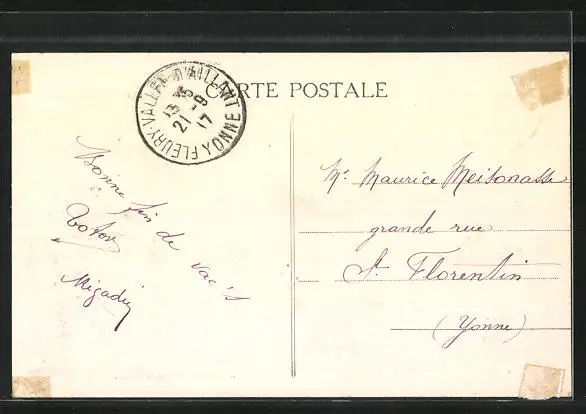 CARTE POSTALE
FLEURY-VALLÉE-D'AILLANT
YONNE
21 -9
17
Bonne fin de vac's
Totor
Mr. Maurice
grande rue
St Florentin
(Yonne)